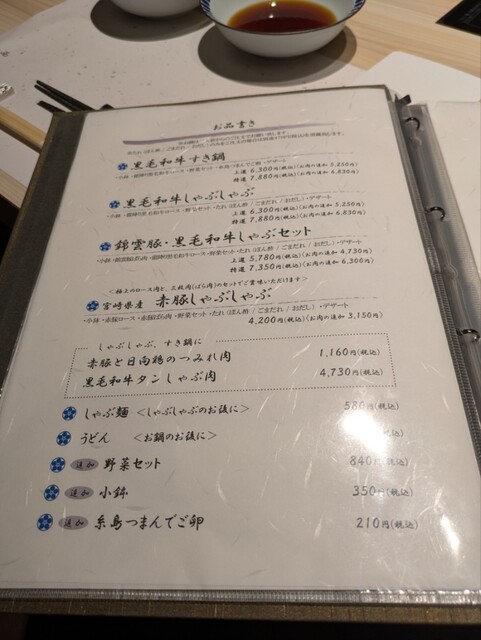 お品書き
黒毛和牛すき鍋
上選 6,300円(税込)(お肉の追加 5,250円)
特選 7,880円(税込)(お肉の追加 6,830円)
黒毛和牛しゃぶしゃぶ
上選 6,300円(税込)(お肉の追加 5,250円)
特選 7,880円(税込)(お肉の追加 6,830円)
錦雲豚・黒毛和牛しゃぶセット
上選 5,780円(税込)(お肉の追加 4,730円)
特選 7,350円(税込)(お肉の追加 6,300円)
<極上のロース肉と、三枚肉(ばら肉)のセットでご賞味いただけます>
宮崎県産 赤豚しゃぶしゃぶ
・小鉢・赤豚ロース・赤豚ばら肉・野菜セット・たれ(ぽん酢/ごまだれ/おだし)・デザート
4,200円(税込)(お肉の追加 3,150円)
しゃぶしゃぶ、すき鍋に
赤豚と日向鶏のつみれ肉 1,160円(税込)
黒毛和牛タンしゃぶ肉 4,730円(税込)
しゃぶ麺 <しゃぶしゃぶのお後に> 580円(税込)
うどん <お鍋のお後に> (税込)
追加 野菜セット 840円(税込)
追加 小鉢 350円(税込)
追加 糸島つまんでご卵 210円(税込)